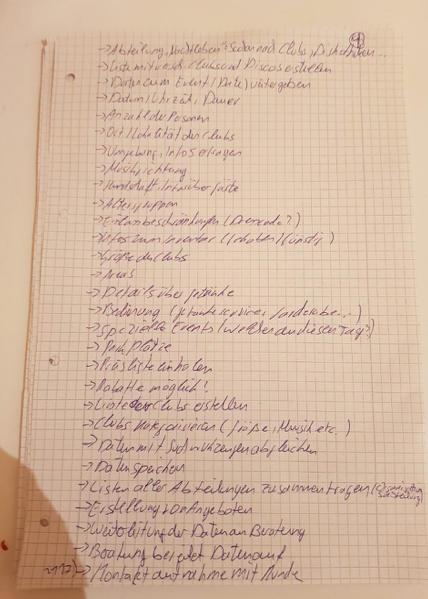 4
→ Abteilung „Nachtleben": Suche nach Clubs, Diskotheken...
→ Liste mit versch. Clubs und Discos erstellen
→ Daten zum Event / (Date) weitergeben
→ Datum / Uhrzeit / Dauer
→ Anzahl der Personen
→ Ort / Lokalität des Clubs
→ Umgebung, Infos erfragen
→ Musikrichtung
→ Kundschaft, Infos über Gäste
→ Altersgruppen
→ Einlassbeschränkungen (Dresscode?)
→ Infos zum Inventar
→ Größe des Clubs
→ Areas
→ Details über Getränke
→ Bedienung (Getränkeservice, Garderobe...)
→ Spezielle Events (welche an diesem Tag?)
→ Parkplätze
→ Preisliste einholen
→ Rabatte möglich!
→ Liste der Clubs erstellen
→ Clubs kategorisieren (Größe, Musik etc.)
→ Daten mit Suchnutzungen abgleichen
→ Daten speichern
→ Listen aller Abteilungen zusammentragen (Organisation
→ Erstellung von Angeboten
→ Weiterleitung der Daten an Beratung
→ Beratung bereitet Daten auf
→ Kontaktaufnahme mit Kunde